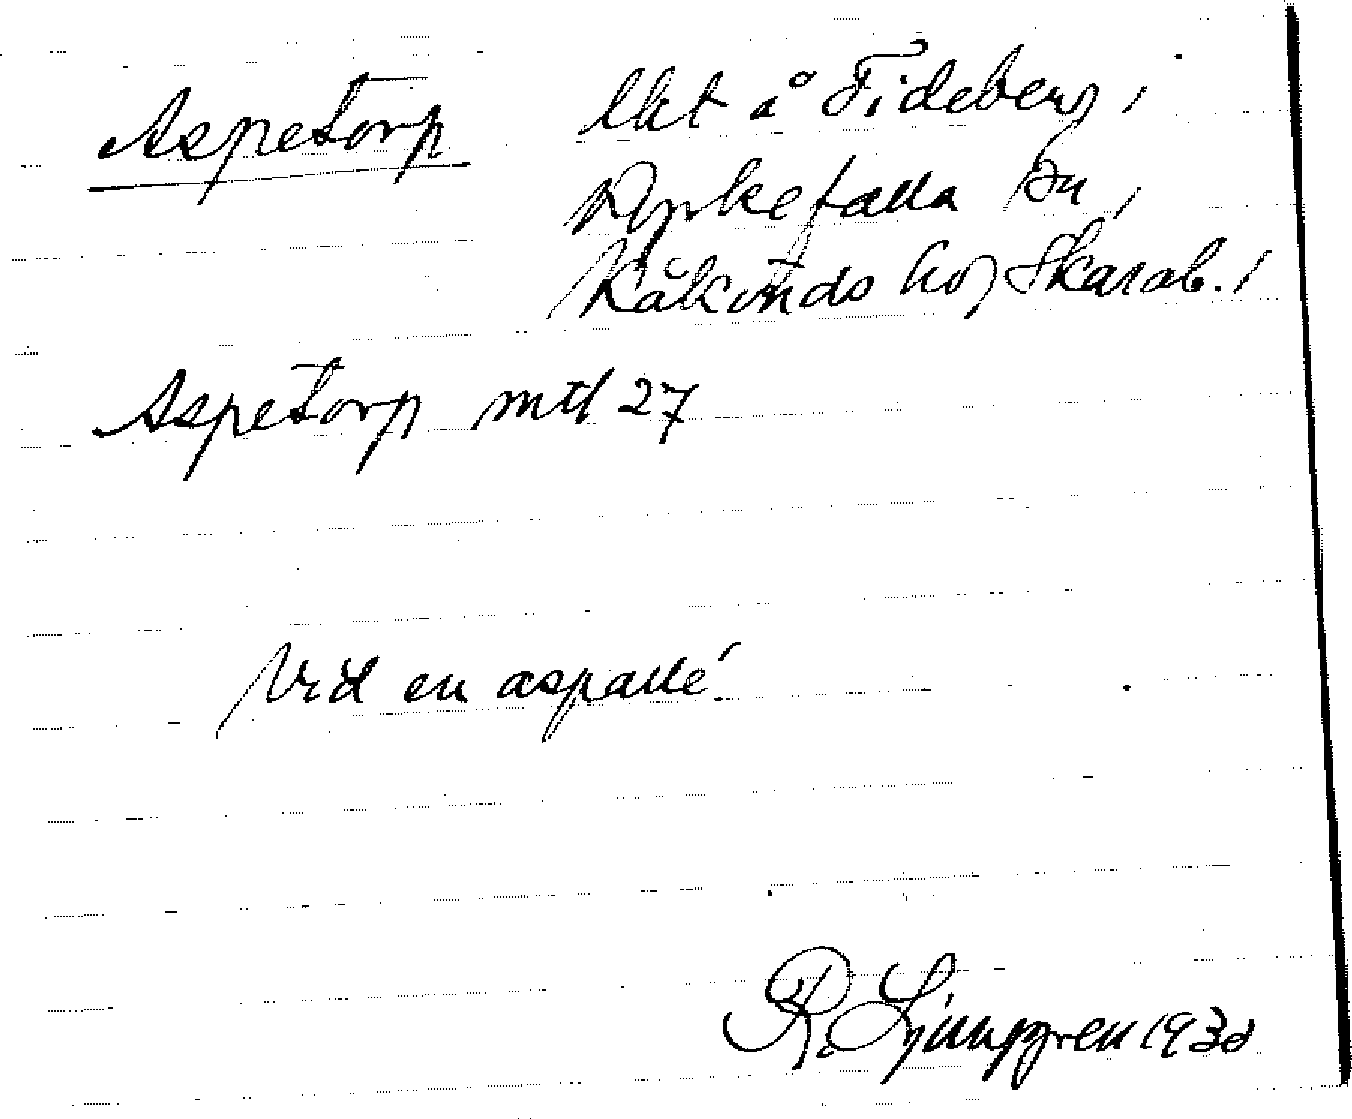 Aspetorp lht å Fideberg,
Kyrkefalla sn,
Kåkinds hd, Skarab.,
Aspetorp mtl 27
Vid en aspallé
R. Ljunggren 1930